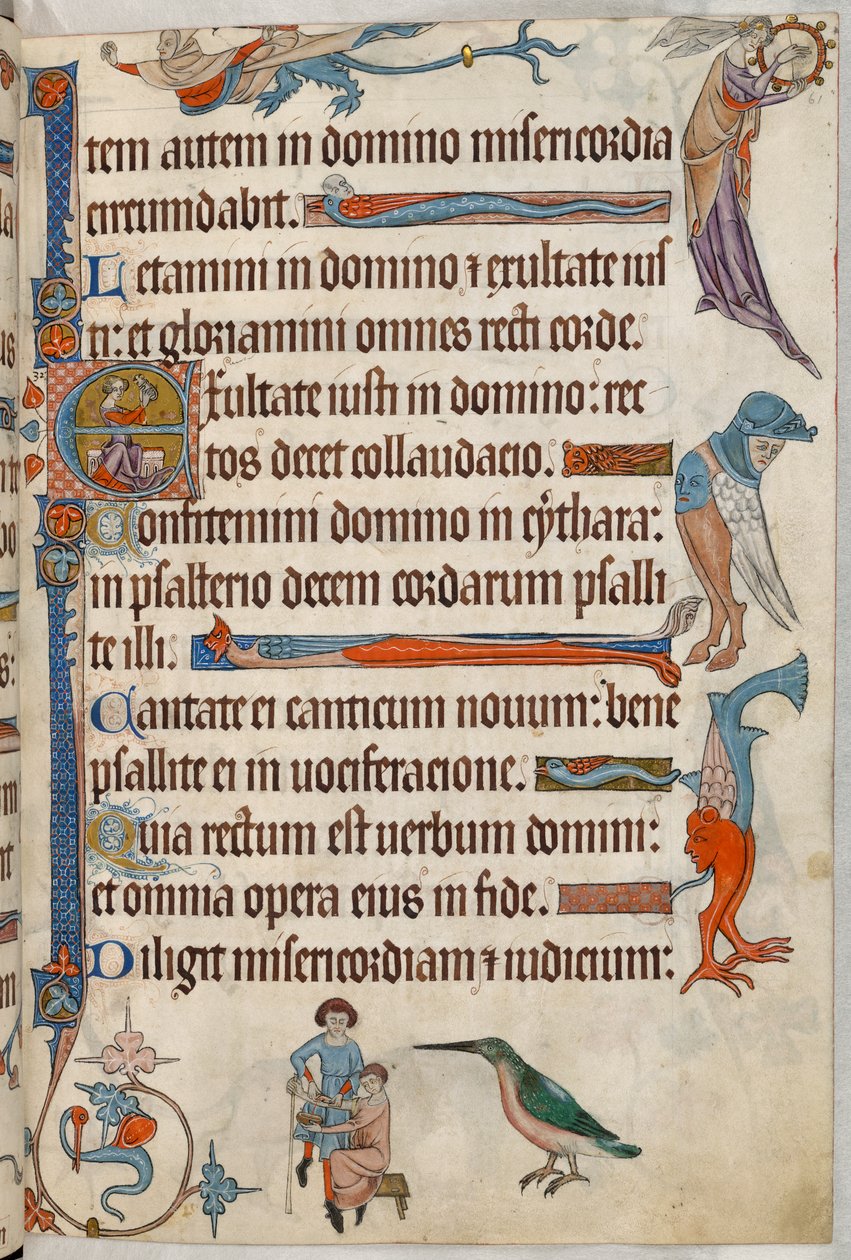 tem autem in domino misericordia
circumdabit.
61
Letamini in domino ⁊ exultate ius
ti: et gloriamini omnes recti corde.
32
Exultate iusti in domino: rec
tos decet collaudacio.
Confitemini domino in cythara:
in psalterio decem cordarum psalli
te illi.
Cantate ei canticum nouum: bene
psallite ei in uociferacione.
Quia rectum est uerbum domini:
et omnia opera eius in fide.
Diligit misericordiam ⁊ iudicium: